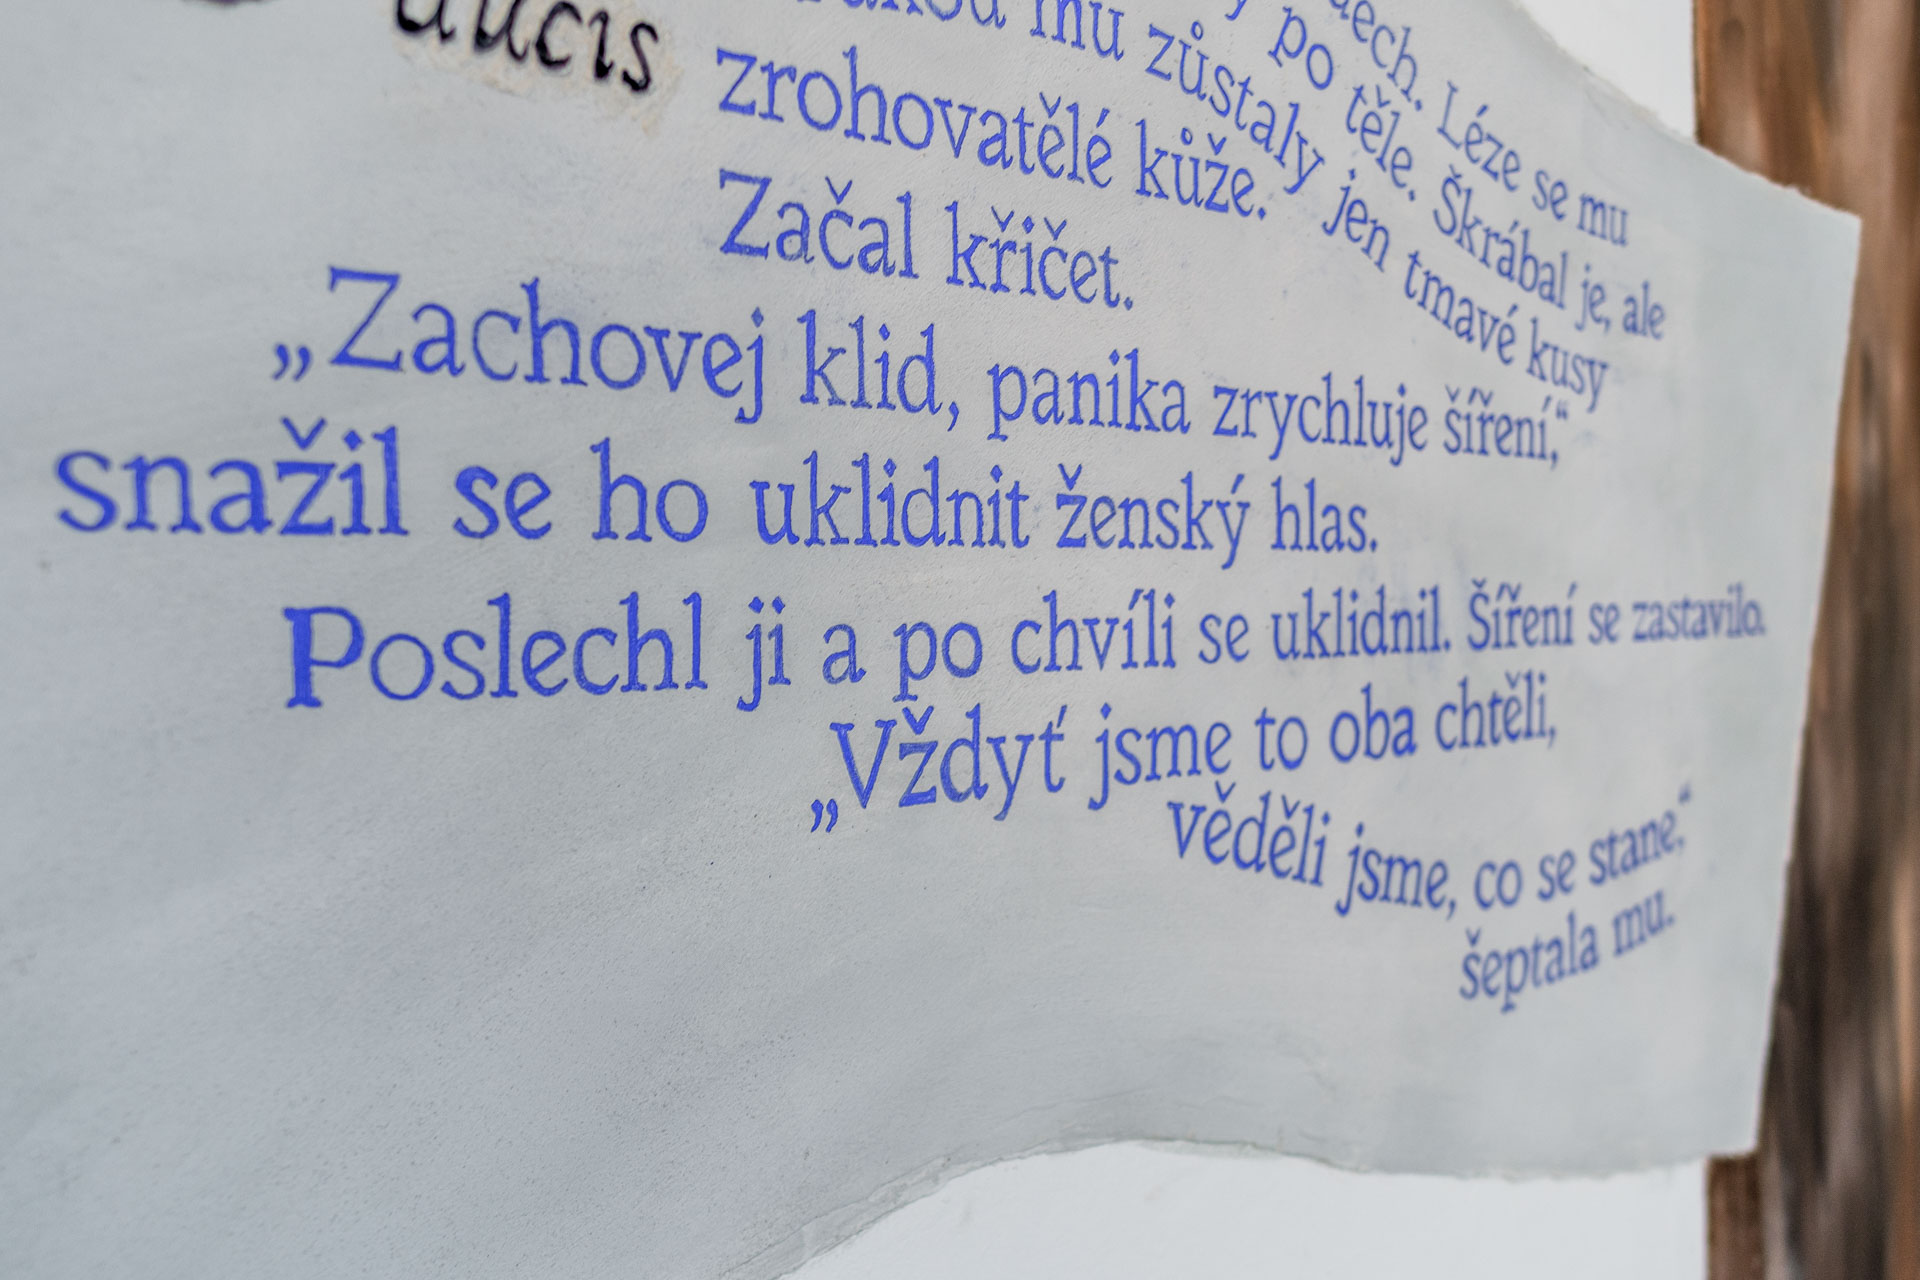 po těle. Škrábal je, ale
mu zůstaly jen tmavé kusy
zrohovatělé kůže.
Začal křičet.
„Zachovej klid, panika zrychluje šíření,“
snažil se ho uklidnit ženský hlas.
Poslechl ji a po chvíli se uklidnil. Šíření se zastavilo.
„Vždyť jsme to oba chtěli,
věděli jsme, co se stane,“
šeptala mu.
Léze se mu